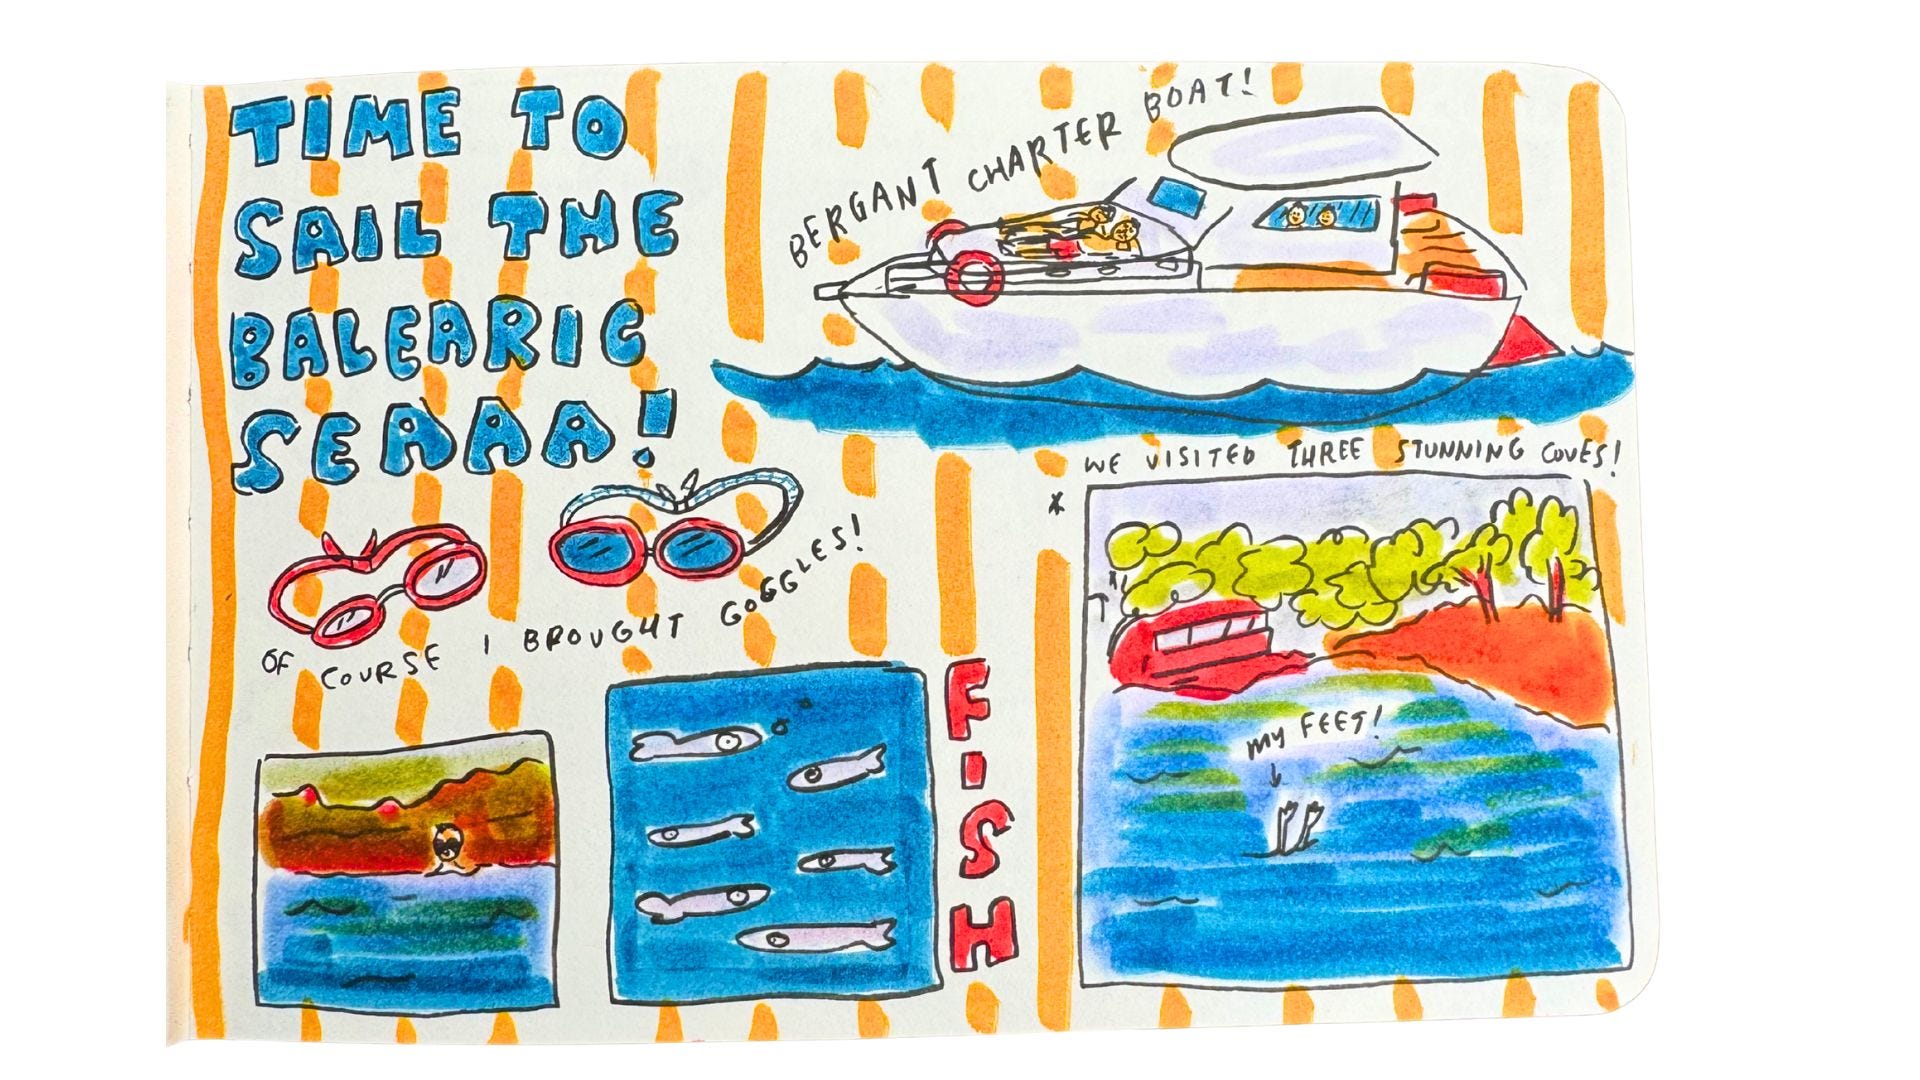 TIME TO
SAIL THE
BALEARIC
SEAAA!
BERGANT CHARTER BOAT!
OF COURSE I BROUGHT GOGGLES!
FISH
WE VISITED THREE STUNNING COVES!
MY FEET!